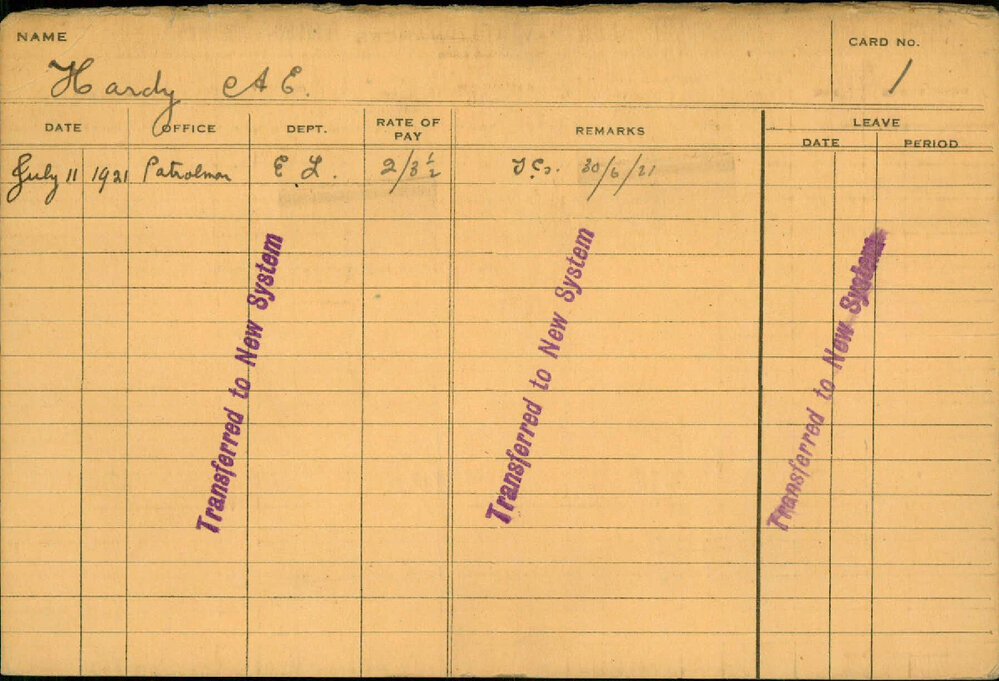 NAME
Hardy A E.
CARD No.
1
DATE OFFICE DEPT. RATE OF PAY REMARKS LEAVE
DATE PERIOD
July 11 1921 Patrolman E L. 2/3½ T.Cs. 30/6/21
Transferred to New System
Transferred to New System
Transferred to New System